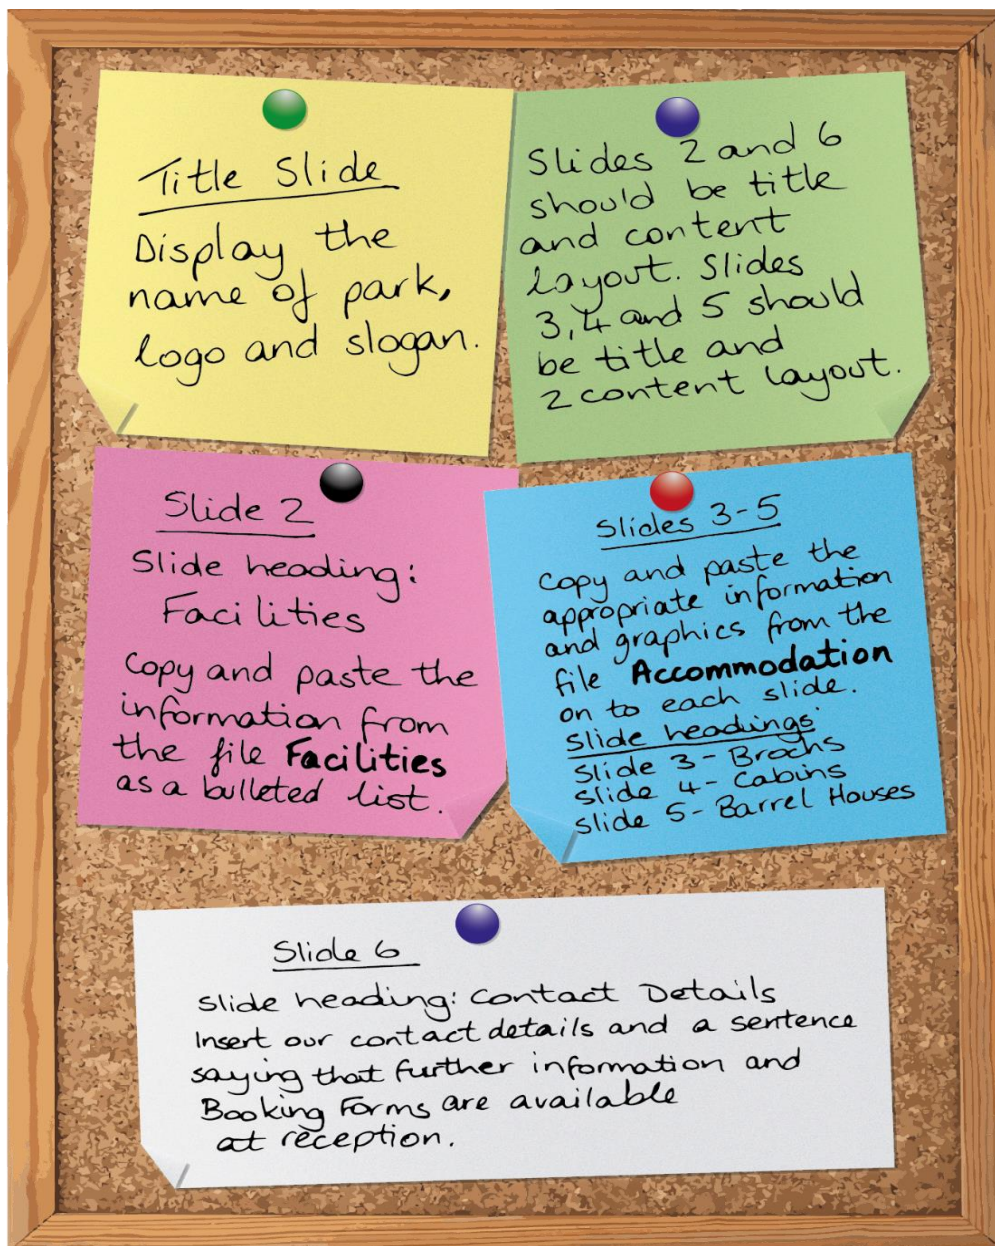 Title Slide
Display the
name of park,
logo and slogan.
Slides 2 and 6
should be title
and content
layout. Slides
3, 4 and 5 should
be title and
2 content layout.
Slide 2
Slide heading:
Facilities
Copy and paste the
information from
the file Facilities
as a bulleted list.
Slides 3-5
Copy and paste the
appropriate information
and graphics from the
file Accommodation
on to each slide.
Slide headings
Slide 3 - Brochs
Slide 4 - Cabins
Slide 5 - Barrel Houses
Slide 6
Slide heading: Contact Details
Insert our contact details and a sentence
saying that further information and
Booking Forms are available
at reception.